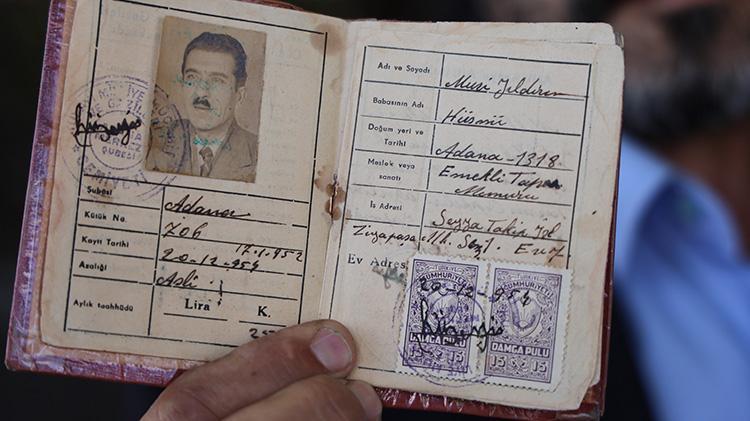 Şubesi
Adana
Kütük No.
706
Kayıt Tarihi
17.1.952
20-12-954
Azalığı
Asli
Aylık taahhüdü
Lira K.
ŞUBESİ
Adı ve Soyadı
Musi Yıldırım
Babasının Adı
Hüsnü
Doğum yeri ve Tarihi
Adana-1318
Meslek veya sanatı
Emekli Tapu Memuru
İş Adresi
Ziyapaşa Mh.
Ev Adresi
20-12-954
CUMHURİYETİ
DAMGA PULU
15 15
CUMHURİYETİ
DAMGA PULU
15 15